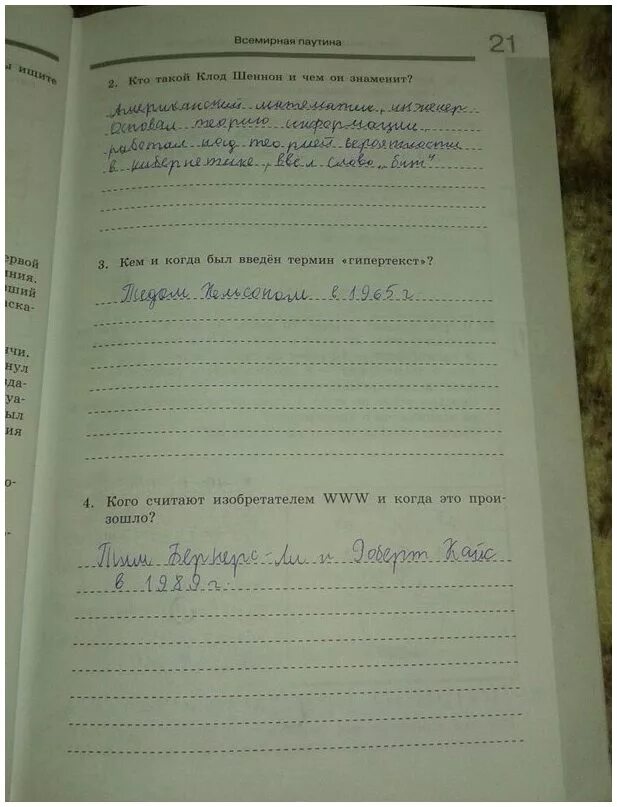 Всемирная паутина
21
ы ищите
2. Кто такой Клод Шеннон и чем он знаменит?
Американский математик, инженер
Основал теорию информации,
работал над теорией вероятности
в кибернетике, ввёл слово „бит"
ервой
ния.
рший
аска-
3. Кем и когда был введён термин «гипертекст»?
Тедом Нельсоном в 1965 г.
ичи.
нул
зда-
уа-
ыл
ия
о-
4. Кого считают изобретателем WWW и когда это прои-
зошло?
Тим Бернерс-Ли и Роберт Кайо
в 1989 г.